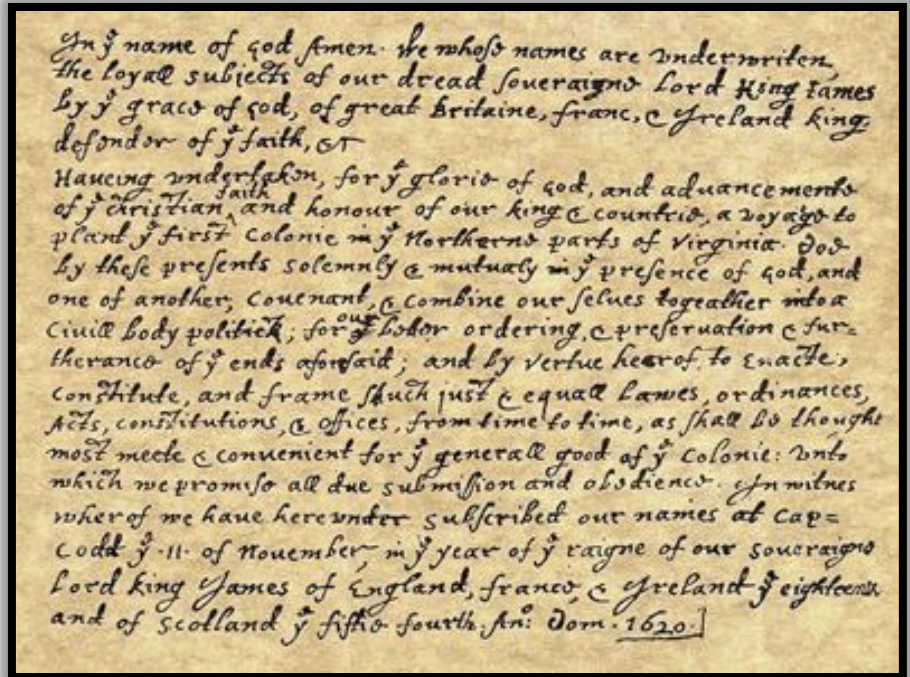 In yͤ name of god Amen· We whose names are vnderwriten,
the loyall subjects of our dread soueraigne Lord King James
by yͤ grace of god, of great Britaine, franc, & Ireland king,
defender of yͤ faith, &c
Haueing vndertaken, for yͤ glorie of god, and aduancemente
of yͤ christian ^faith and honour of our king & countrie, a voyage to
plant yͤ first colonie in yͤ Northerne parts of Virginia· doe
by these presents solemnly & mutualy in yͤ presence of god, and
one of another, couenant, & combine our selues togeather into a
ciuill body politick; for our better ordering, & preseruation & fur=
therance of yͤ ends aforesaid; and by vertue hearof, to enacte,
constitute, and frame shuch just & equall Lawes, ordinances,
Acts, constitutions, & offices, from time to time, as shall be thought
most meete & conuenient for yͤ generall good of yͤ colonie: vnto
which we promise all due submission and obedience. In witnes
wherof we haue herevnder subscribed our names at Cap=
Codd yͤ ·11· of Nouember, in yͤ year of yͤ raigne of our soueraigne
Lord king James of England, france, & Ireland yͤ eighteenth
and of Scotland yͤ fiftie fourth. An͛o: Dom· 1620·]